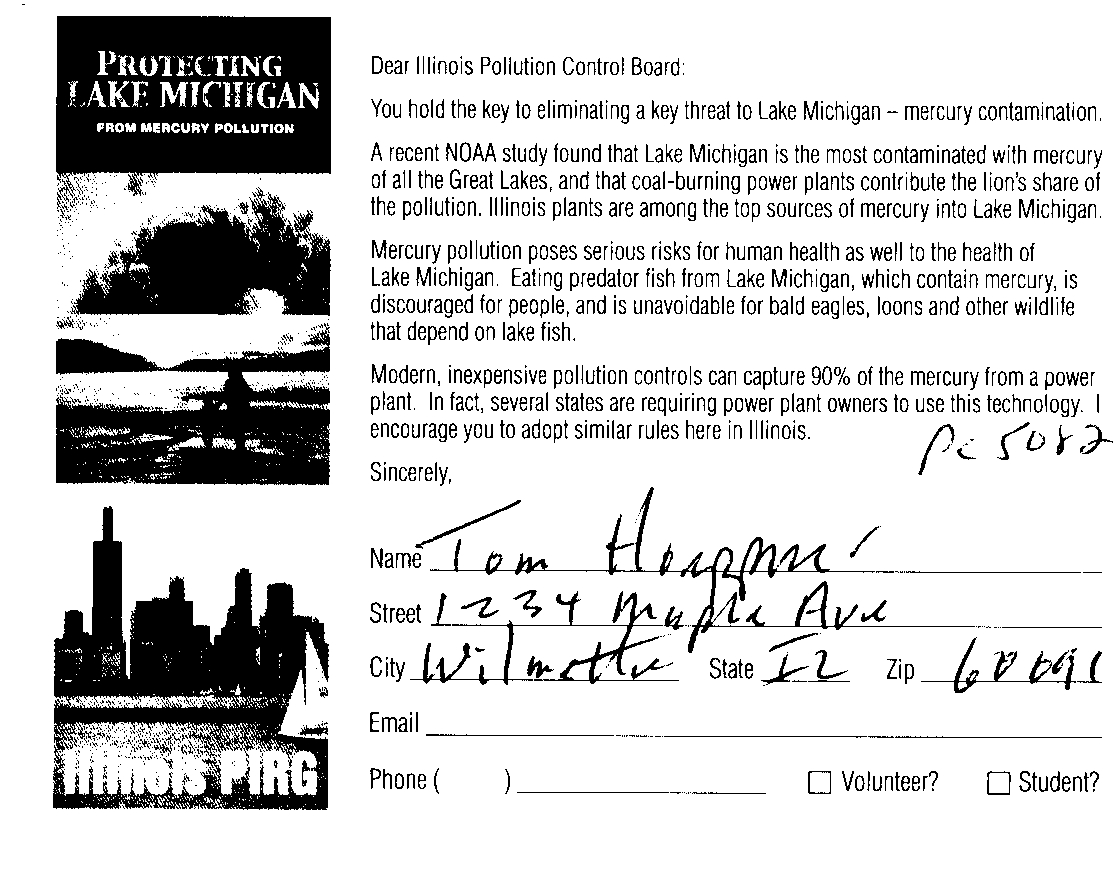 PROTECTING
LAKE MICHIGAN
FROM MERCURY POLLUTION
Illinois PIRG
Dear Illinois Pollution Control Board:
You hold the key to eliminating a key threat to Lake Michigan – mercury contamination.
A recent NOAA study found that Lake Michigan is the most contaminated with mercury
of all the Great Lakes, and that coal-burning power plants contribute the lion's share of
the pollution. Illinois plants are among the top sources of mercury into Lake Michigan.
Mercury pollution poses serious risks for human health as well to the health of
Lake Michigan. Eating predator fish from Lake Michigan, which contain mercury, is
discouraged for people, and is unavoidable for bald eagles, loons and other wildlife
that depend on lake fish.
Modern, inexpensive pollution controls can capture 90% of the mercury from a power
plant. In fact, several states are requiring power plant owners to use this technology. I
encourage you to adopt similar rules here in Illinois.
PC 5082
Sincerely,
Name Tom
Street 1234 Maple Ave
City Wilmette State IL Zip 60091
Email
Phone ( )
Volunteer? Student?